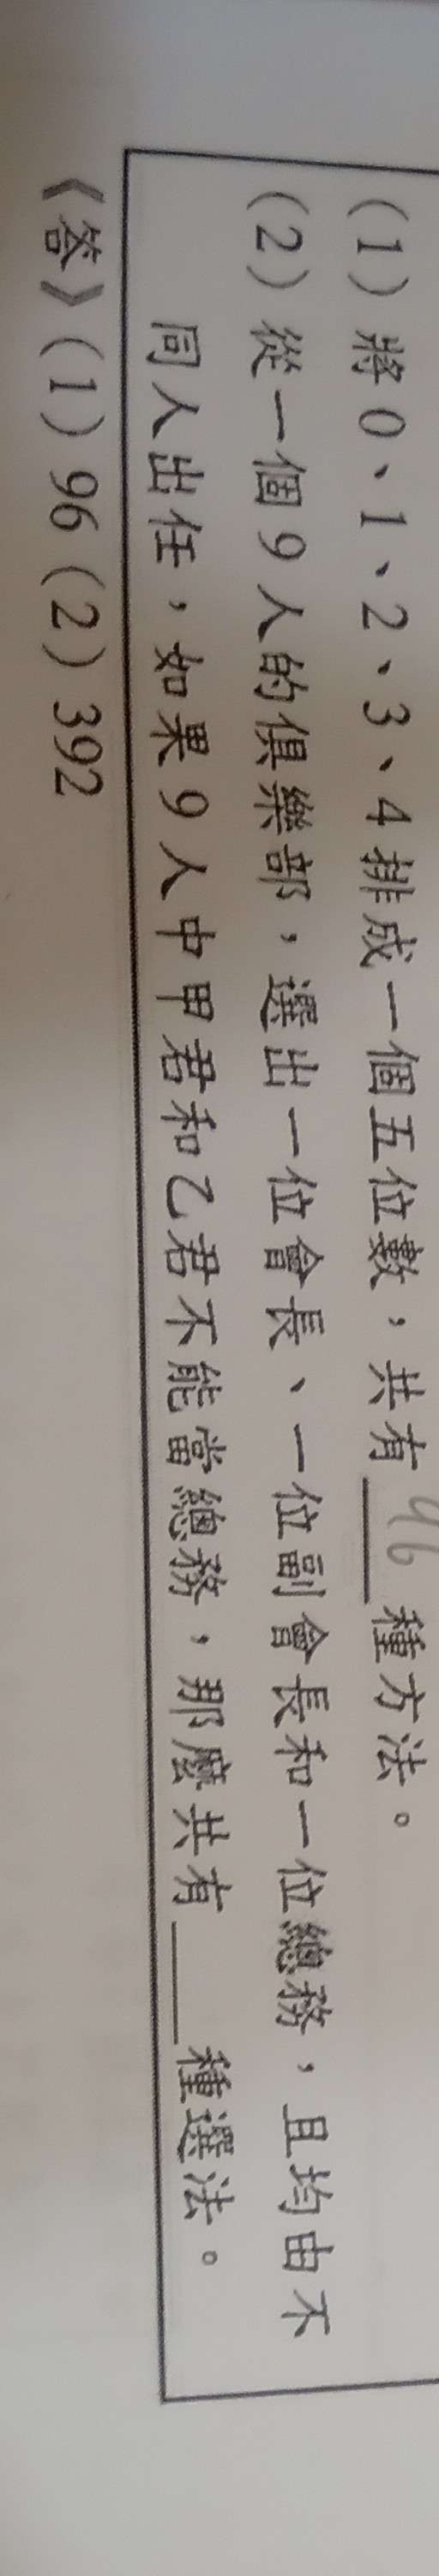 (1) 將 0、1、2、3、4 排成一個五位數，共有 96 種方法。
(2) 從一個 9 人的俱樂部，選出一位會長、一位副會長和一位總務，且均由不
同人出任，如果 9 人中甲君和乙君不能當總務，那麼共有____種選法。
《答》(1) 96 (2) 392